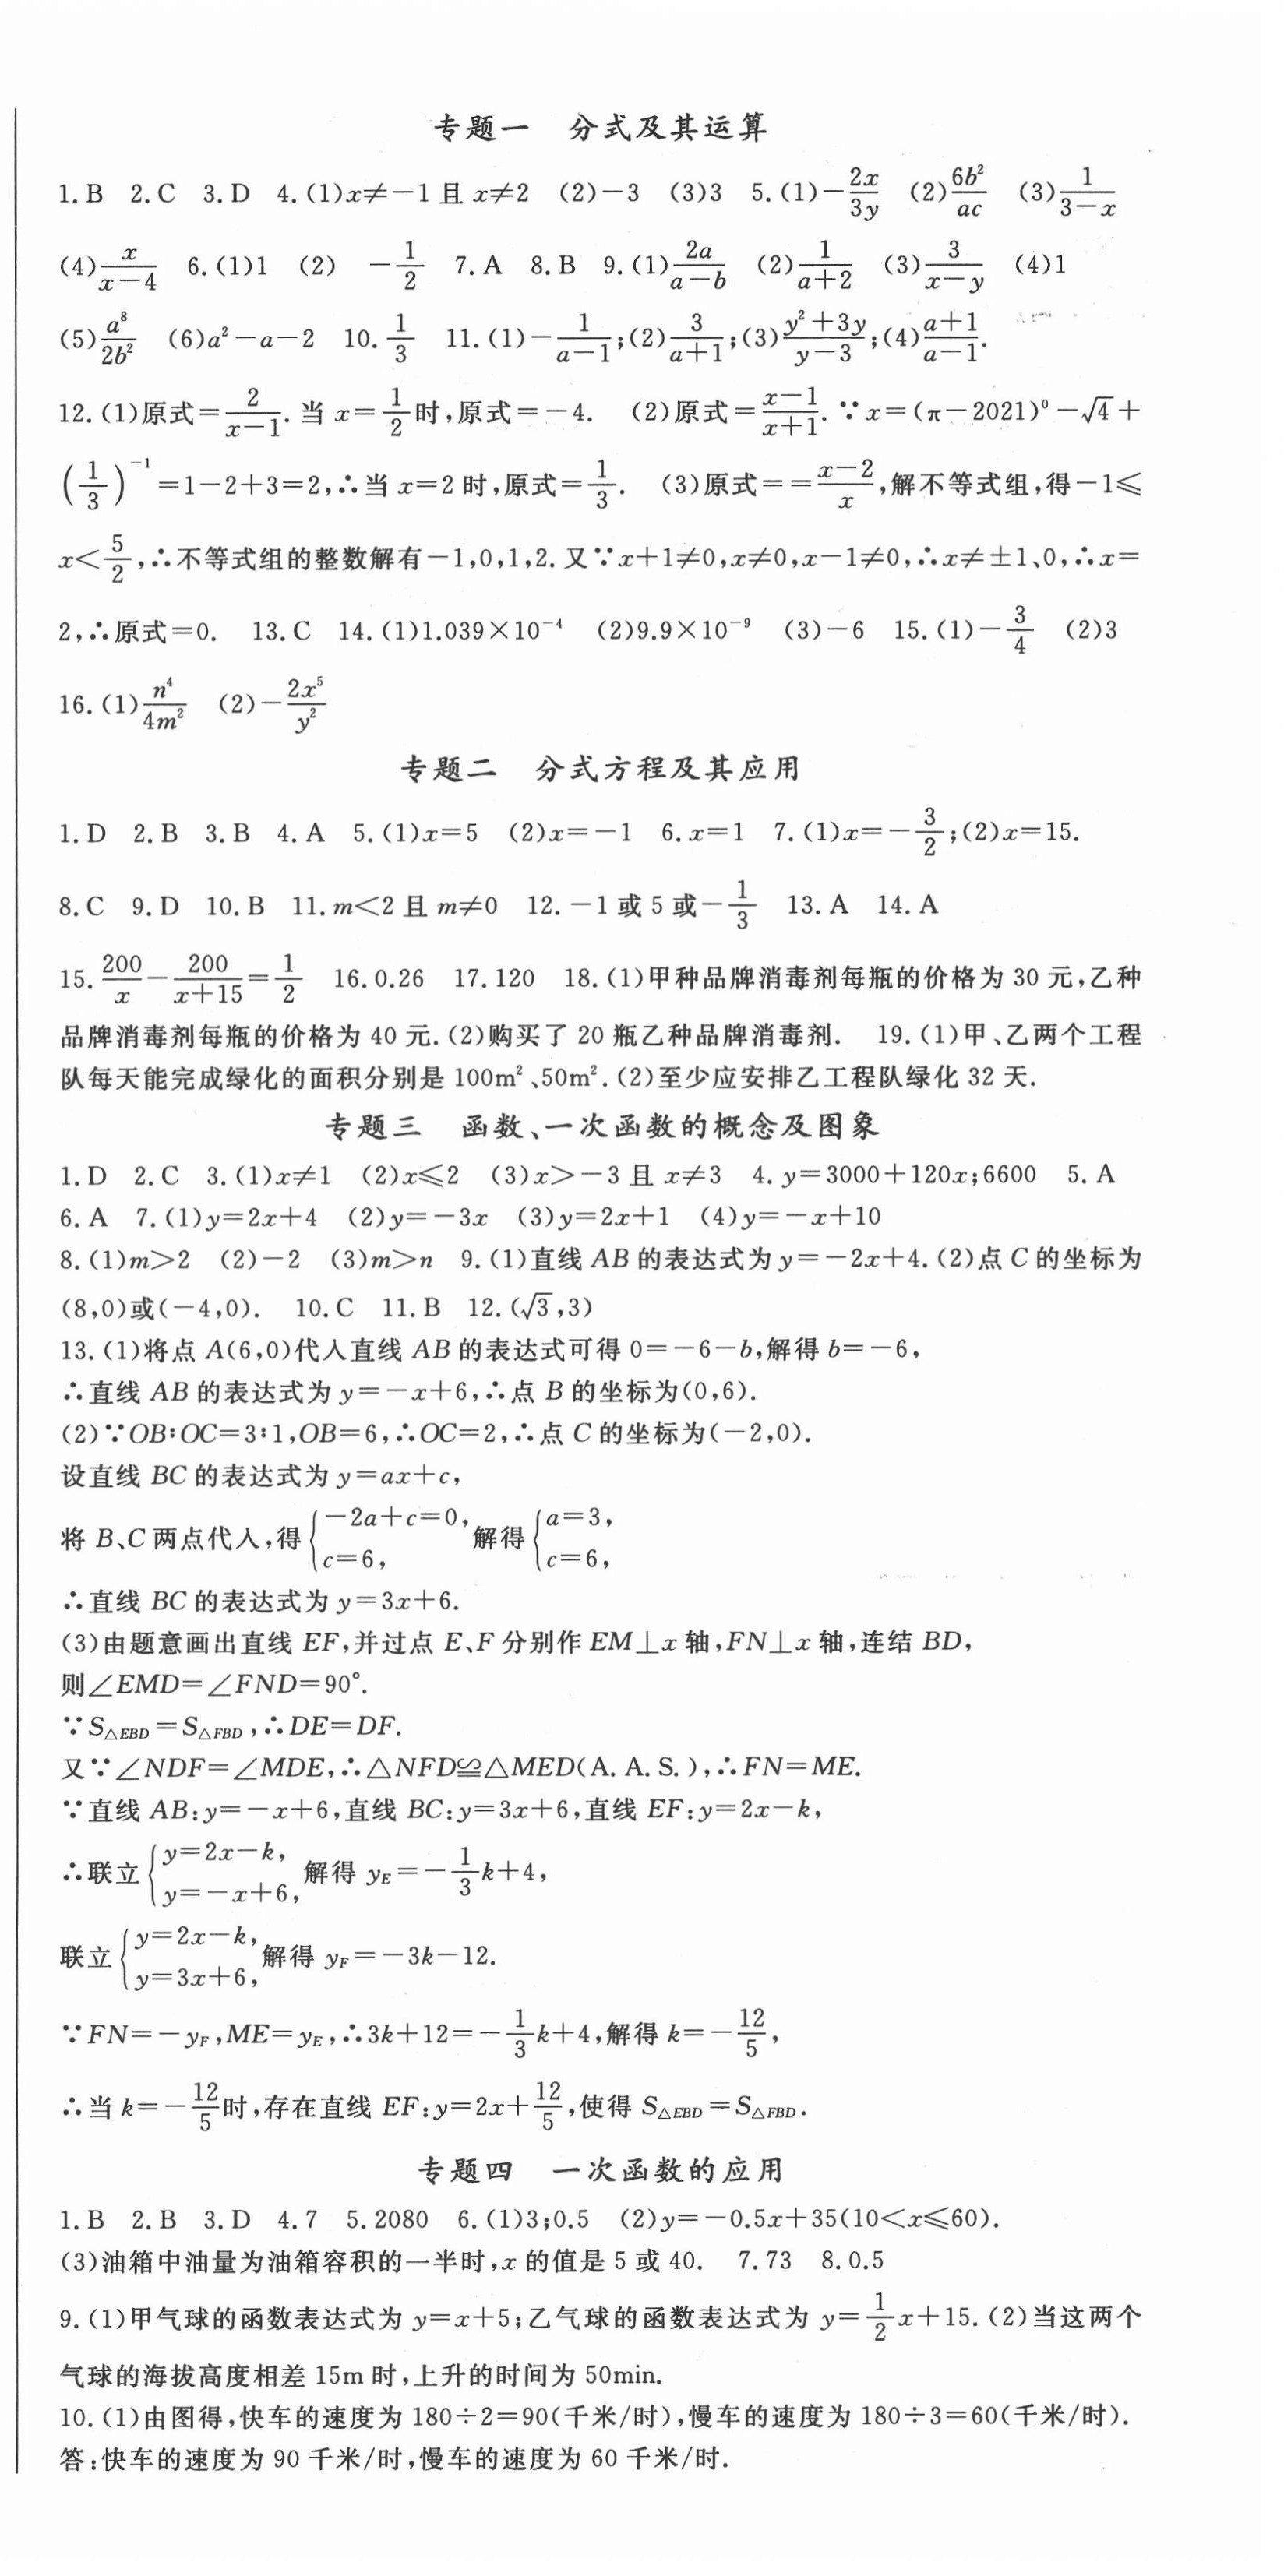 专题一　分式及其运算
1.B　2.C　3.D　4.(1)x≠－1且 x≠2　(2)－3　(3)3　5.(1)－2x/3y　(2)6b²/ac　(3)1/(3－x)
(4)x/(x－4)　6.(1)1　(2)　－1/2　7.A　8.B　9.(1)2a/(a－b)　(2)1/(a＋2)　(3)3/(x－y)　(4)1
(5)a⁸/2b²　(6)a²－a－2　10.1/3　11.(1)－1/(a－1);(2)3/(a＋1);(3)(y²＋3y)/(y－3);(4)(a＋1)/(a－1).
12.(1)原式＝2/(x－1).当 x＝1/2时,原式＝－4.　(2)原式＝(x－1)/(x＋1).∵x＝(π－2021)⁰－√4＋
(1/3)⁻¹＝1－2＋3＝2,∴当 x＝2时,原式＝1/3.　(3)原式＝＝(x－2)/x,解不等式组,得－1≤
x＜5/2,∴不等式组的整数解有－1,0,1,2.又∵x＋1≠0,x≠0,x－1≠0,∴x≠±1、0,∴x＝
2,∴原式＝0.　13.C　14.(1)1.039×10⁻⁴　(2)9.9×10⁻⁹　(3)－6　15.(1)－3/4　(2)3
16.(1)n⁴/4m²　(2)－2x⁵/y²
专题二　分式方程及其应用
1.D　2.B　3.B　4.A　5.(1)x＝5　(2)x＝－1　6.x＝1　7.(1)x＝－3/2;(2)x＝15.
8.C　9.D　10.B　11.m＜2且 m≠0　12.－1或5或－1/3　13.A　14.A
15.200/x－200/(x＋15)＝1/2　16.0.26　17.120　18.(1)甲种品牌消毒剂每瓶的价格为30元,乙种
品牌消毒剂每瓶的价格为40元.(2)购买了20瓶乙种品牌消毒剂.　19.(1)甲、乙两个工程
队每天能完成绿化的面积分别是100m²、50m².(2)至少应安排乙工程队绿化32天.
专题三　函数、一次函数的概念及图象
1.D　2.C　3.(1)x≠1　(2)x≤2　(3)x＞－3且 x≠3　4.y＝3000＋120x;6600　5.A
6.A　7.(1)y＝2x＋4　(2)y＝－3x　(3)y＝2x＋1　(4)y＝－x＋10
8.(1)m＞2　(2)－2　(3)m＞n　9.(1)直线AB的表达式为y＝－2x＋4.(2)点C的坐标为
(8,0)或(－4,0).　10.C　11.B　12.(√3,3)
13.(1)将点A(6,0)代入直线AB的表达式可得0＝－6－b,解得b＝－6,
∴直线AB的表达式为y＝－x＋6,∴点B的坐标为(0,6).
(2)∵OB∶OC＝3∶1,OB＝6,∴OC＝2,∴点C的坐标为(－2,0).
设直线BC的表达式为y＝ax＋c,
将B、C两点代入,得{－2a＋c＝0, c＝6, 解得{a＝3, c＝6,
∴直线BC的表达式为y＝3x＋6.
(3)由题意画出直线EF,并过点E、F分别作EM⊥x轴,FN⊥x轴,连结BD,
则∠EMD＝∠FND＝90°.
∵S△EBD＝S△FBD,∴DE＝DF.
又∵∠NDF＝∠MDE,∴△NFD≌△MED(A.A.S.),∴FN＝ME.
∵直线AB:y＝－x＋6,直线BC:y＝3x＋6,直线EF:y＝2x－k,
∴联立{y＝2x－k, y＝－x＋6, 解得yE＝－1/3k＋4,
联立{y＝2x－k, y＝3x＋6, 解得yF＝－3k－12.
∵FN＝－yF,ME＝yE,∴3k＋12＝－1/3k＋4,解得k＝－12/5,
∴当k＝－12/5时,存在直线EF:y＝2x＋12/5,使得S△EBD＝S△FBD.
专题四　一次函数的应用
1.B　2.B　3.D　4.7　5.2080　6.(1)3;0.5　(2)y＝－0.5x＋35(10＜x≤60).
(3)油箱中油量为油箱容积的一半时,x的值是5或40.　7.73　8.0.5
9.(1)甲气球的函数表达式为y＝x＋5;乙气球的函数表达式为y＝1/2x＋15.(2)当这两个
气球的海拔高度相差15m时,上升的时间为50min.
10.(1)由图得,快车的速度为180÷2＝90(千米/时),慢车的速度为180÷3＝60(千米/时).
答:快车的速度为90千米/时,慢车的速度为60千米/时.